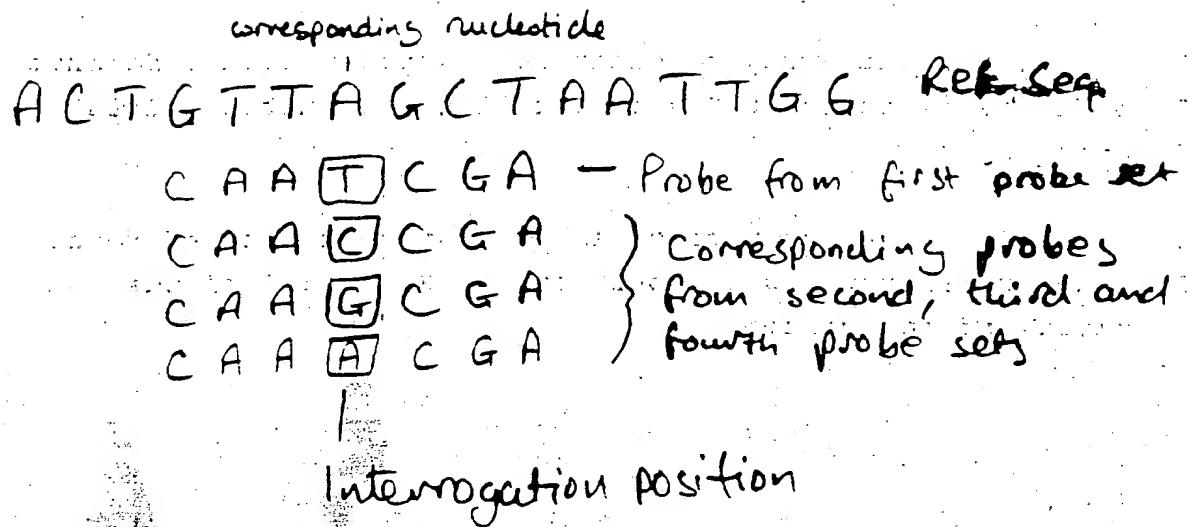 corresponding nucleotide
A C T G T T A G C T A A T T G G Ref Seq
C A A T C G A — Probe from first probe set
C A A C C G A
C A A G C G A
C A A A C G A
} Corresponding probes
from second, third and
fourth probe sets
Interrogation position